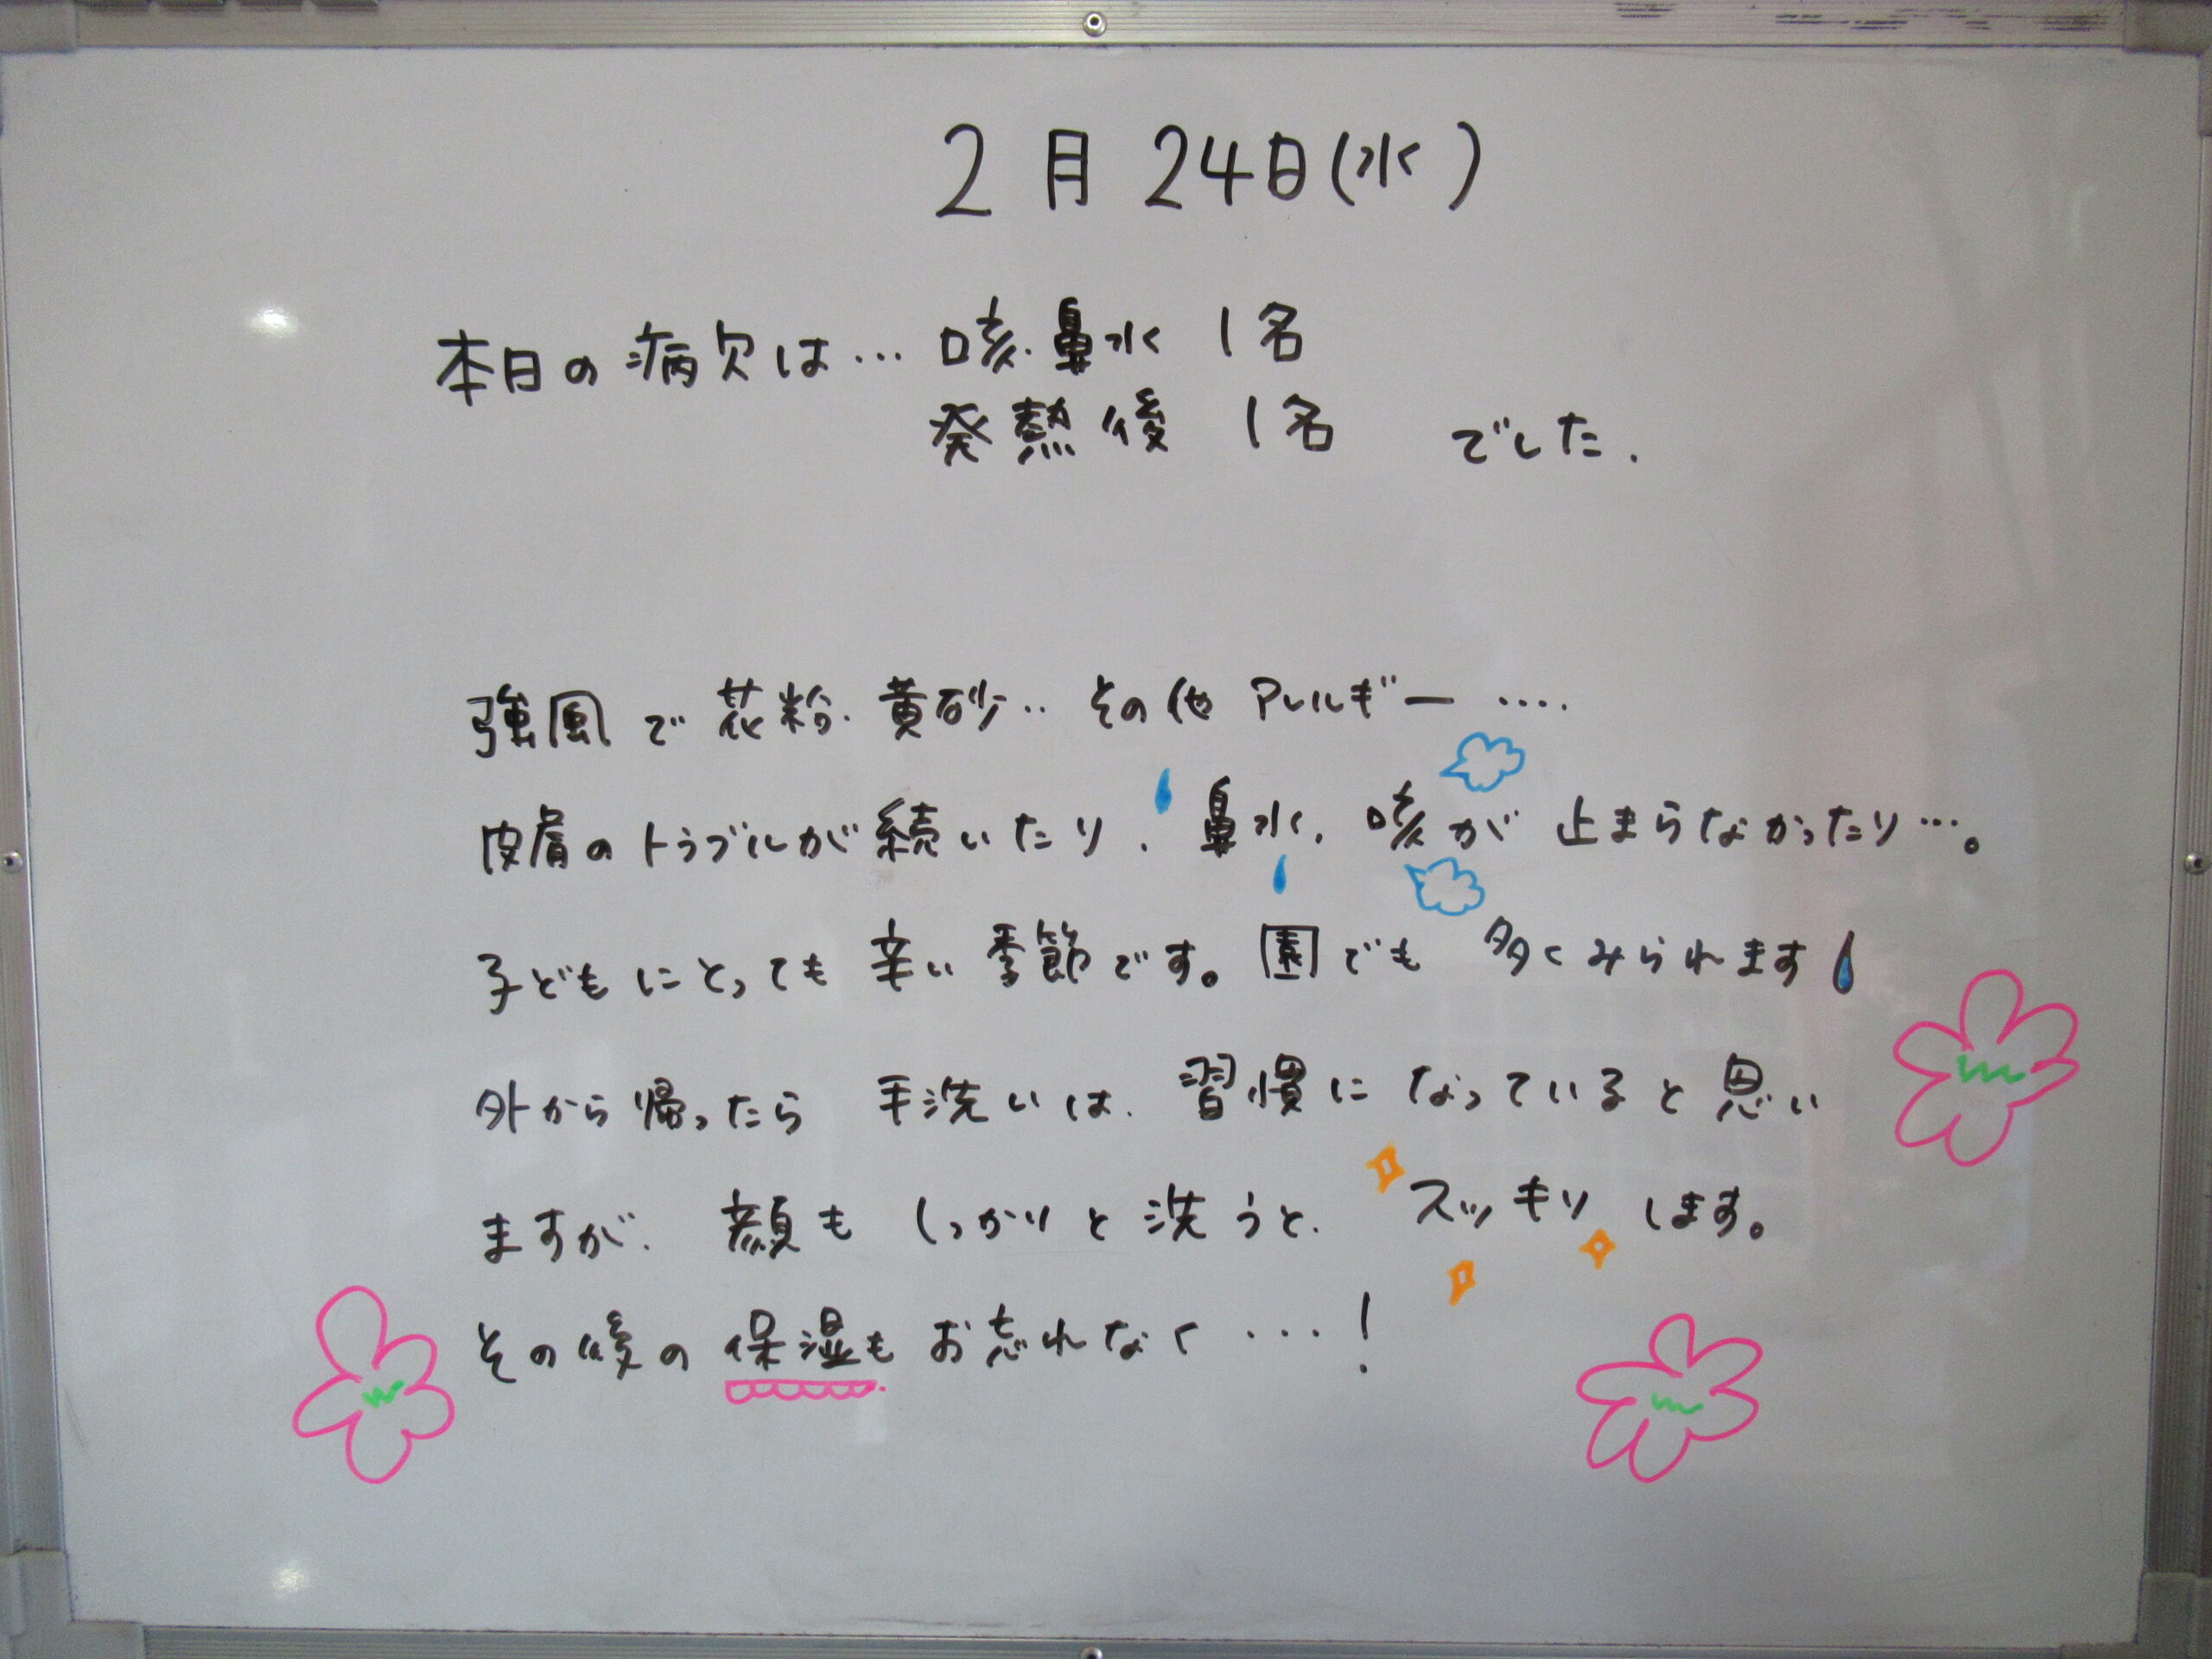 2月24日(水)
本日の病欠は… 咳.鼻水 1名
発熱後 1名 でした.
強風で花粉.黄砂‥その他アレルギー‥‥
皮膚のトラブルが続いたり、鼻水、咳が止まらなかったり…。
子どもにとっても辛い季節です。園でも多くみられます
外から帰ったら 手洗いは、習慣になっていると思い
ますが、顔もしっかりと洗うと、スッキリします。
その後の保湿もお忘れなく…!